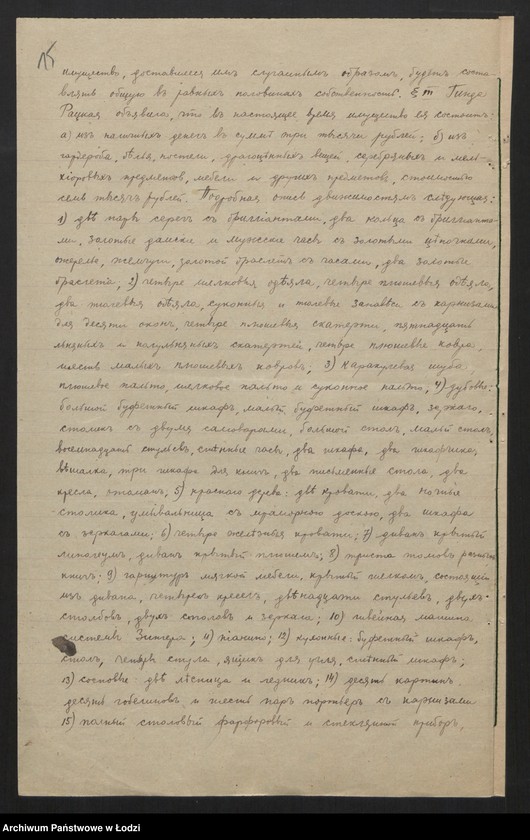 15
имущество, доставшееся имъ случайнымъ образомъ, будетъ соста-
влять общую въ равныхъ половинахъ собственность. § III Гинда
Рацкая объявила, что въ настоящее время имущество ея состоитъ:
а) изъ наличныхъ денегъ въ суммѣ три тысячи рублей; б) изъ
гардероба, бѣлья, постели, драгоцѣнныхъ вещей, серебряныхъ и мель-
хіоровыхъ предметовъ, мебели и другихъ предметовъ, стоимостью
семь тысячъ рублей. Подробная опись движимостямъ слѣдующая:
1) двѣ пары серегъ съ брилліантами, два кольца съ брилліанта-
ми, золотые дамскіе и мужскіе часы съ золотыми цѣпочками,
ожерелье, жемчуги, золотой браслетъ съ часами, два золотые
браслета; 2) четыре шелковыя одѣяла, четыре плюшевыя одѣяла,
два тюлевыя одѣяла, суконныя и тюлевые занавѣси съ карнизами
для десяти оконъ, четыре плюшевыя скатерти, пятнадцать
льняныхъ и полульняныхъ скатертей, четыре плюшевые ковра,
шесть малыхъ плюшевыхъ ковровъ; 3) каракулевая шуба,
плюшевое пальто, шелковое пальто и суконное пальто; 4) дубовые:
большой буфетный шкафъ, малый буфетный шкафъ, зеркало,
столикъ съ двумя самоварами, большой столъ, малый столъ,
восемнадцать стульевъ, стѣнные часы, два шкафа, два шкафчика,
вѣшалка, три шкафа для книгъ, два письменные стола, два
кресла, отоманъ; 5) краснаго дерева: двѣ кровати, два ночные
столика, умывальница съ мраморною доскою, два шкафа
съ зеркалами; 6) четыре желѣзныя кровати; 7) диванъ крытый
линолеумъ, диванъ крытый плюшемъ; 8) триста томовъ разныхъ
книгъ; 9) гарнитуръ мягкой мебели, крытый шелкомъ, состоящій
изъ дивана, четырехъ креселъ, двѣнадцати стульевъ, двухъ
столбовъ, двухъ столовъ и зеркала; 10) швейная машина
системы Зингера; 11) піанино; 12) кухонные: буфетный шкафъ,
столъ, четыре стула, ящикъ для угля, стѣнный шкафъ;
13) сосновые: двѣ лѣстницы и ледникъ; 14) десять картинъ,
десять гобелиновъ и шесть паръ портьеръ съ карнизами
15) полный столовый фарфоровый и стеклянный приборъ,
Archiwum Państwowe w Łodzi